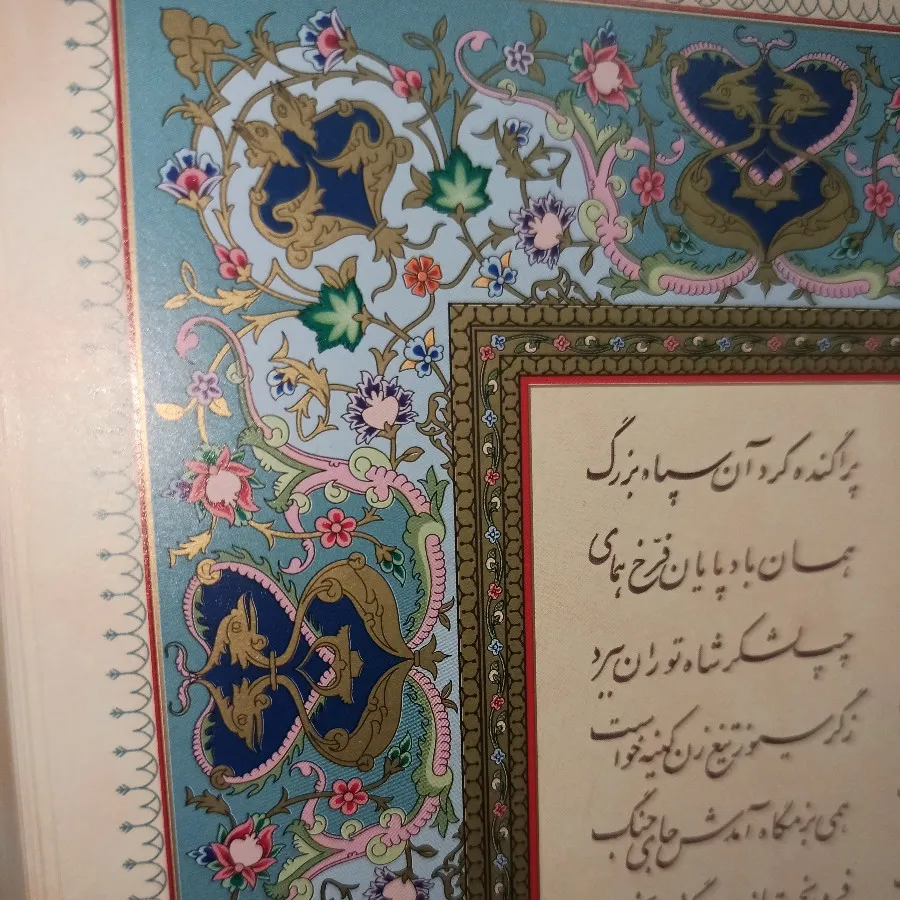 پراگنده کرد آن سپاه بزرگ
همان بادپایان فرّخ همای
چپ لشکر شاه توران ببرد
ز گرسیوز تیغ زن کینه خواست
همی بزمگاه آمدش جای جنگ